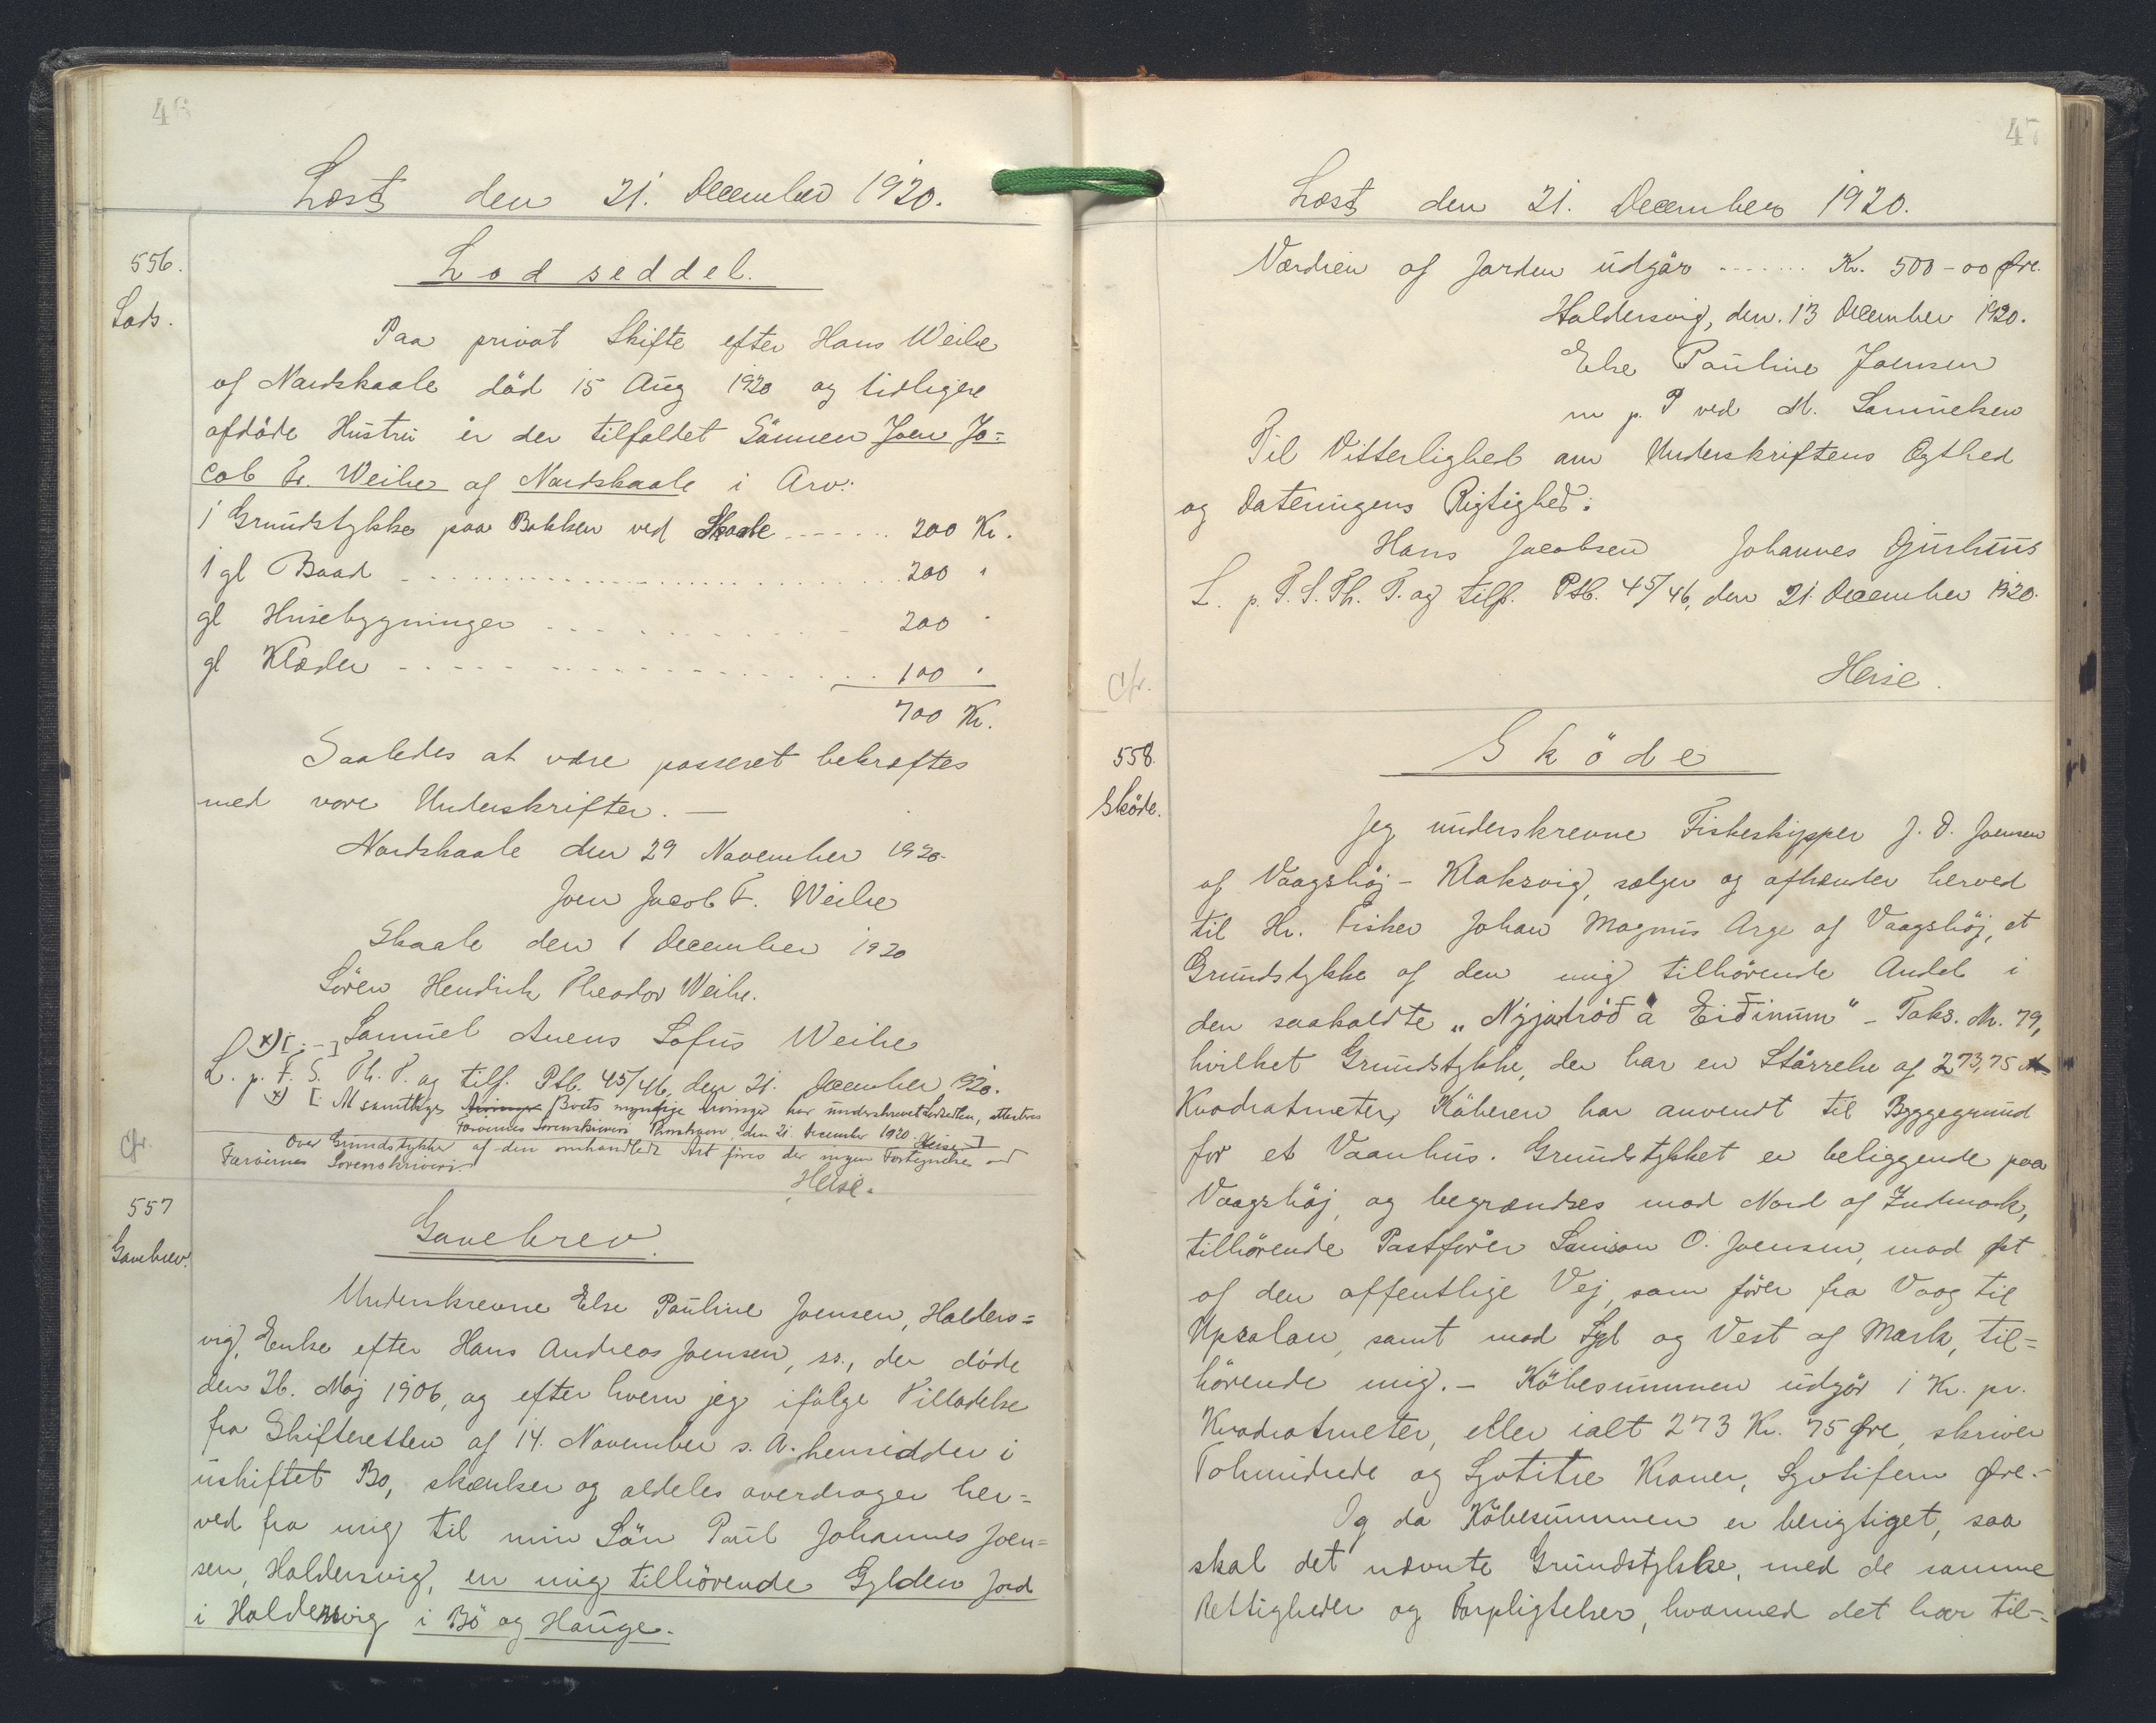 46
Læst den 21. December 1920.
556.
Lods.
Lodseddel.
Paa privat Skifte efter Hans Weihe
af Nordskaale död 15 Aug 1920 og tidligere
afdöde Hustru er der tilfaldet Sönnen Joen Ja=
cob Fr. Weihe af Nordskaale i Arv:
1 Grundstykke paa Bakken ved Skaale ....... 200 Kr.
1 gl Baad ....... 200 "
gl Husebygninger ....... 200 "
gl Klæder ....... 100 "
700 Kr.
Saaledes at være passeret bekræftes
med vore Underskrifter. —
Nordskaale den 29 November 1920.
Joen Jacob F. Weihe
Skaale den 1 December 1920
Sören Hendrik Theodor Weihe.
x) [: -] Samuel Anens Sofus Weihe
L. p. F. S. Th. T. og tilf. Ptb. 45/46, den 21. December 1920.
x) [: At samtlige Arvinger Boets myndige Arvinger har underskrevet Lodsedlen, attesteres
Færöernes Sorenskriveri Thorshavn, den 21. December 1920. Heise :]
Cfr.
Over Grundstykker af den omhandlede Art föres der ingen Fortegnelse ved
Færöernes Sorenskriveri
Heise.
557
Gavebrev.
Gavebrev.
Underskrevne Else Pauline Joensen, Halders=
vig, Enke efter Hans Andreas Joensen, ss., der döde
den 26. Maj 1906, og efter hvem jeg ifölge Tilladelse
fra Skifteretten af 14. November s. A. hensidder i
uskiftet Bo, skænker og aldeles overdrager her=
ved fra mig til min Sön Paul Johannes Joen=
sen, Haldersvig, en mig tilhörende Gylden Jord
i Haldersvig i Bö og Hauge.
47
Læst den 21. December 1920.
Værdien af Jorden udgör ....... Kr. 500-00 Øre.
Haldersvig, den. 13 December 1920.
Else Pauline Joensen
m p. P ved M. Samuelsen
Til Vitterlighed om Underskriftens Ægthed
og Dateringens Rigtighed:
Hans Jacobsen Johannes Djurhuus
L. p. F. S. Th. T. og tilf. Ptb. 45/46, den 21. December 1920.
Heise.
Cfr.
558.
Sköde.
Sköde
Jeg underskrevne Fiskeskipper J. D. Joensen
af Vaagshöj - Klaksvig, sælger og afhænder herved
til Hr. Fisker Johan Magnus Arge af Vaagshöj, et
Grundstykke af den mig tilhörende Andel i
den saakaldte „Nýjatröð á Eiðinum" - Taks. Nr. 79,
hvilket Grundstykke, der har en Störrelse af 273,75
Kvadratmeter, Köberen har anvendt til Byggegrund
for et Vaanhus. Grundstykket er beliggende paa
Vaagshöj, og begrændses mod Nord af Indmark,
tilhörende Postförer Samson O. Joensen, mod Øst
af den offentlige Vej, som förer fra Vaag til
Upsalan, samt mod Syd og Vest af Mark, til=
hörende mig. - Köbesummen udgör 1 Kr. pr.
Kvadratmeter, eller ialt 273 Kr. 75 Øre, skriver
Tohundrede og Syvtitre Kroner, Syvtifem Øre.-
Og da Köbesummen er berigtiget, saa
skal det nævnte Grundstykke, med de samme
Rettigheder og Forpligtelser, hvormed det har til=